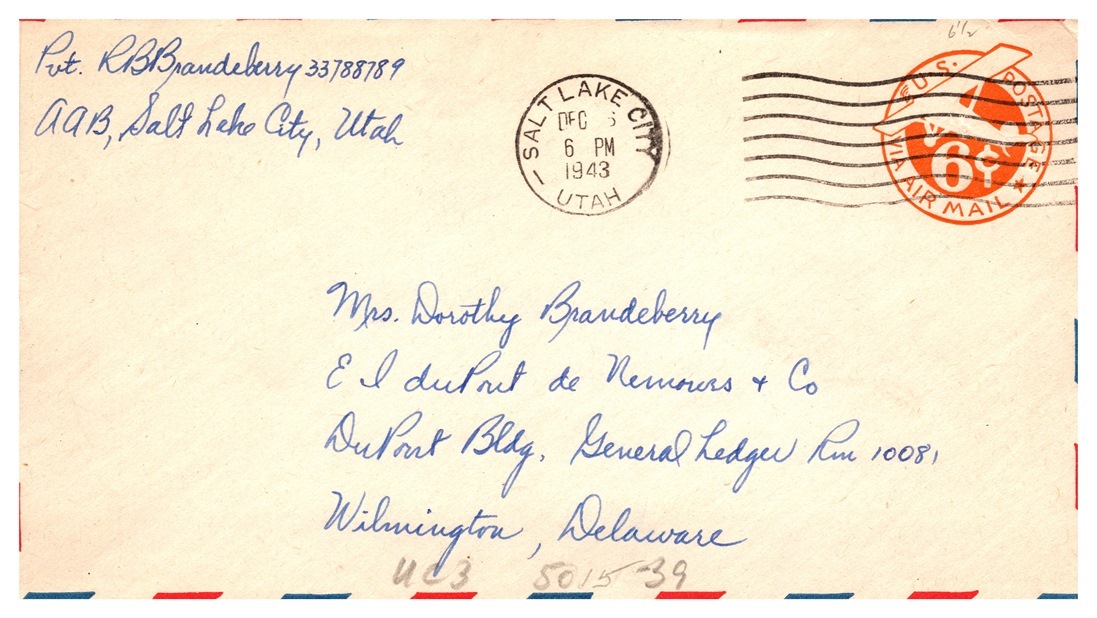 Pvt. RBBrandeberry 33788789
AAB, Salt Lake City, Utah
SALT LAKE CITY
DEC 6
6 PM
1943
UTAH
6½
U.S. POSTAGE
6¢
VIA AIR MAIL
Mrs. Dorothy Brandeberry
E I duPont de Nemours + Co
DuPont Bldg, General Ledger Rm 10081
Wilmington, Delaware
UC3 5015-39